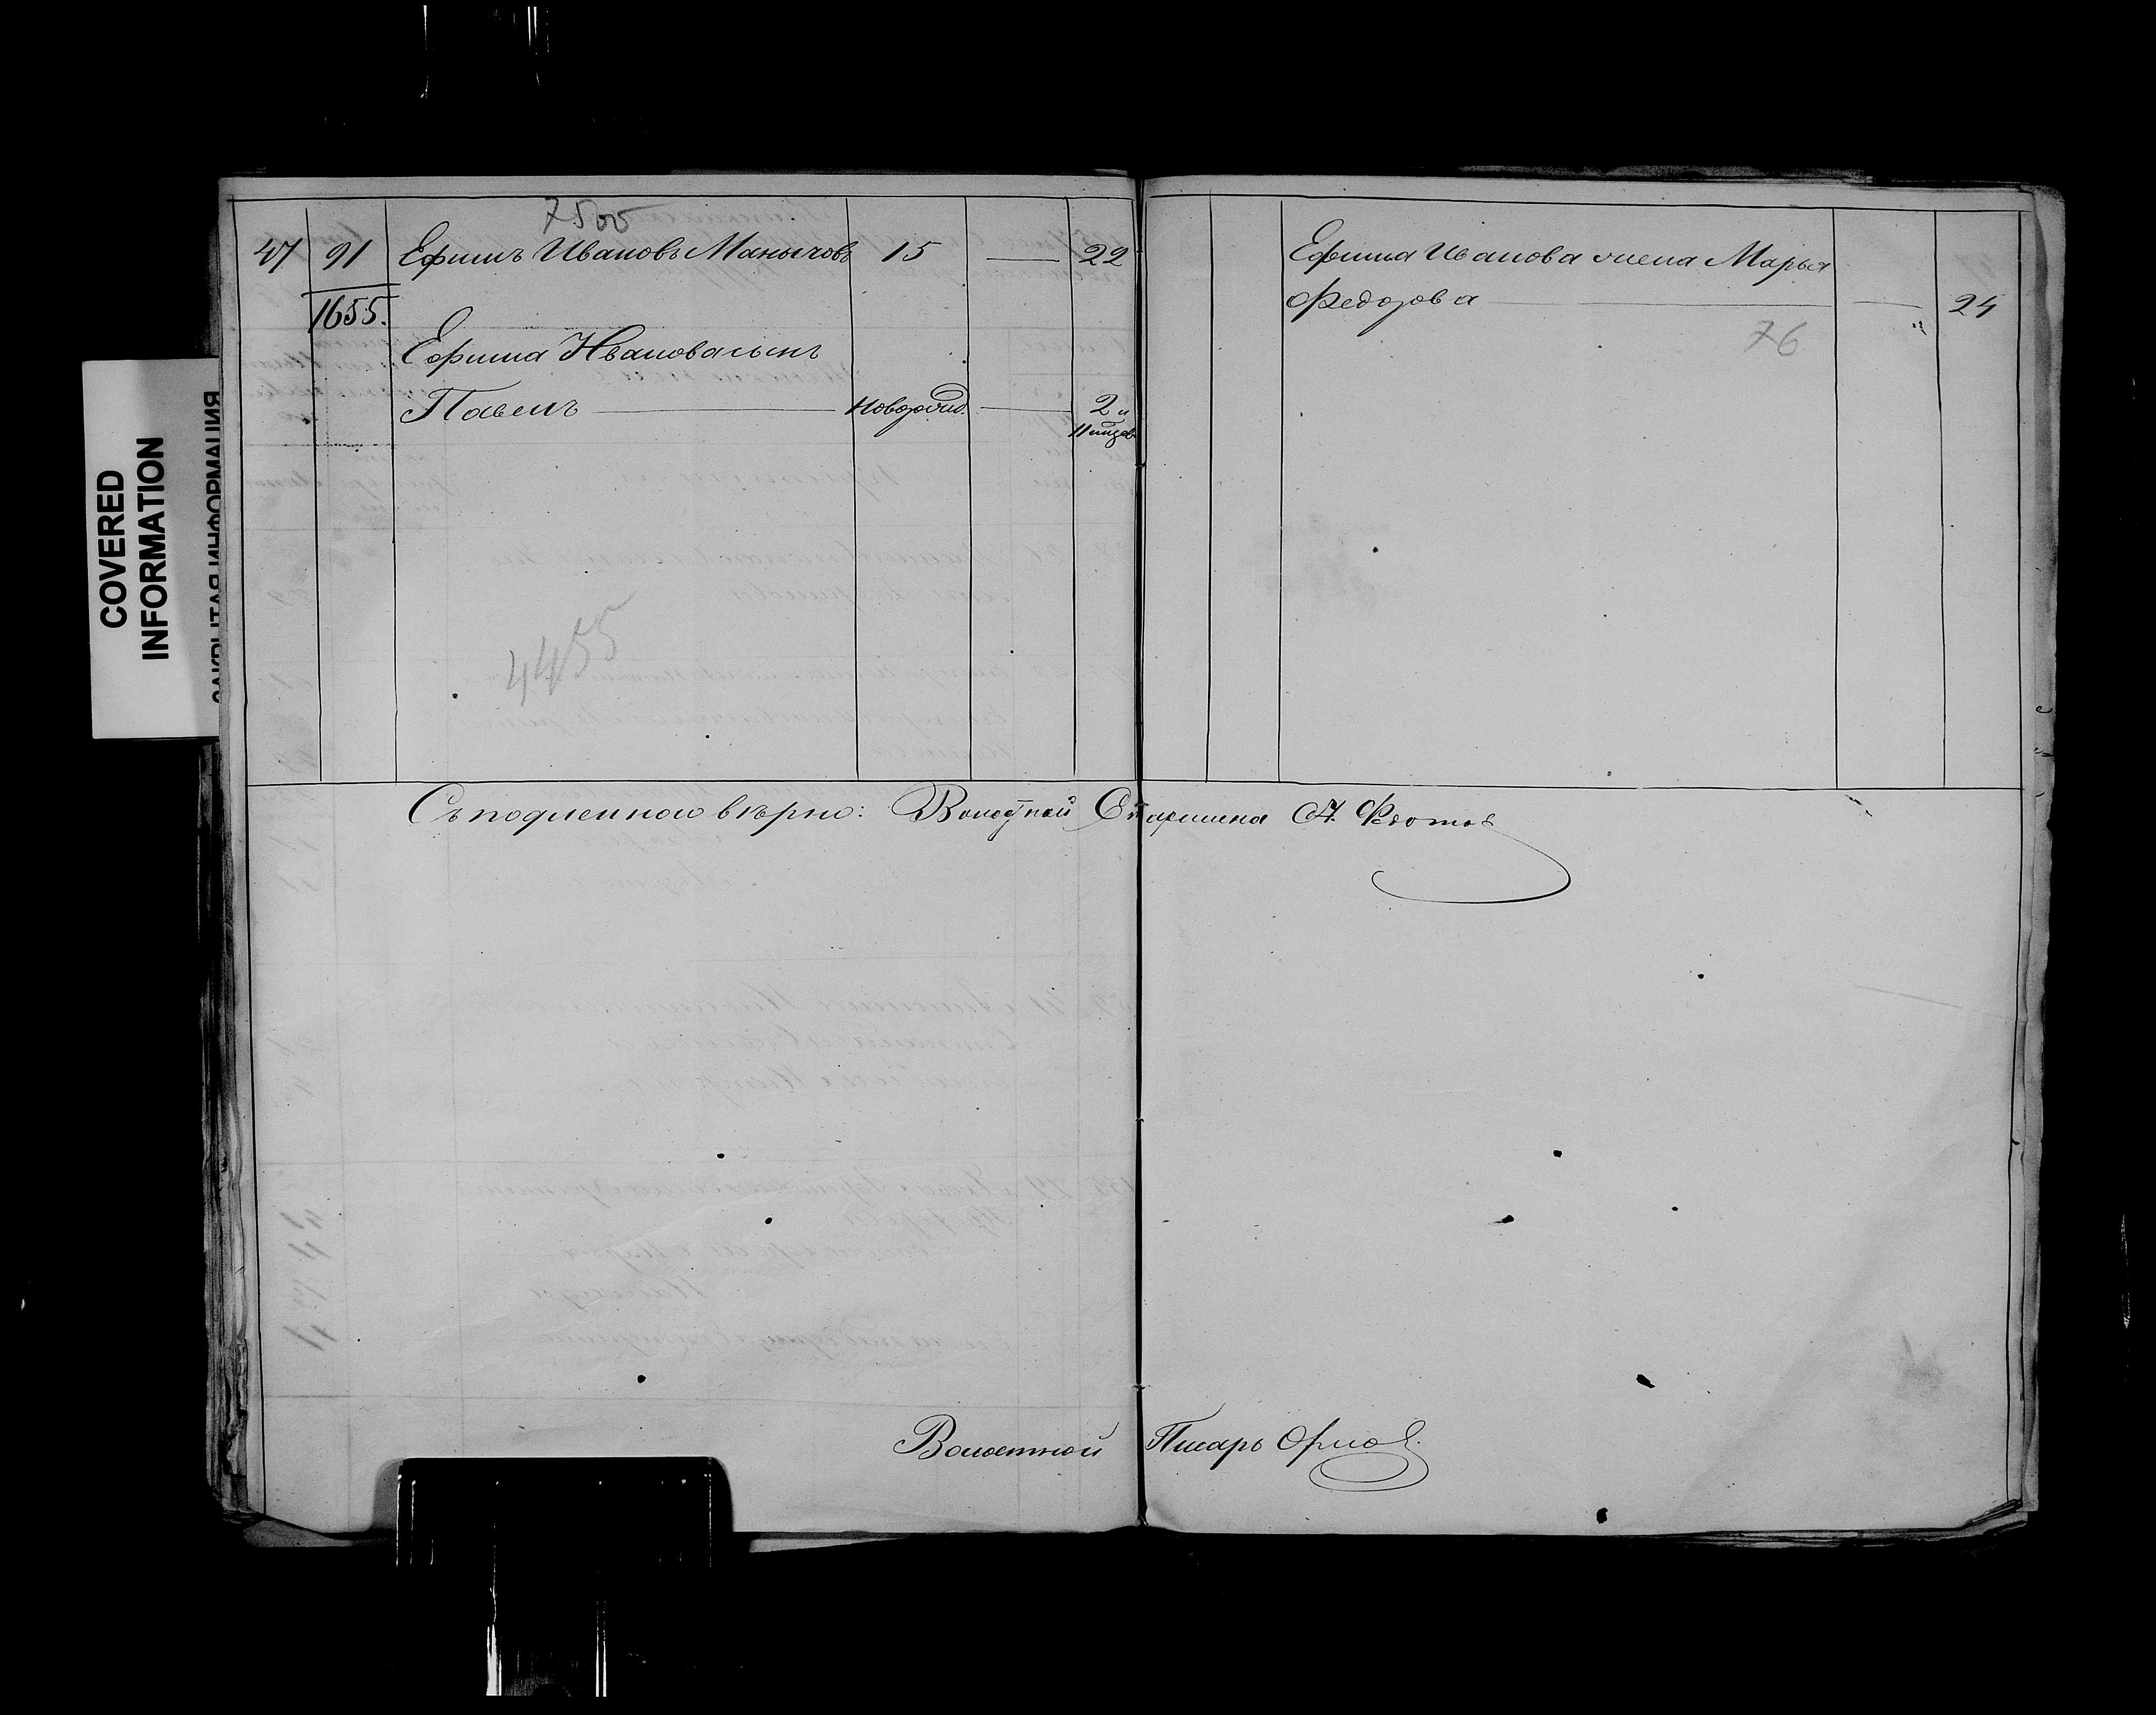 7500
47 91 Ефимъ Ивановъ Манычовъ 15 — 22
1655.
Ефима Иванова сынъ
Павелъ — новорожд. — 2 и
11 мѣсяц
4455
Ефима Иванова жена Марья
Федорова — — 24
76
Съ подленною вѣрно: Волостной Старшина А. Федотов
Волостной Писарь Орлов.
COVERED
INFORMATION
ЗАКРЫТАЯ ИНФОРМАЦИЯ